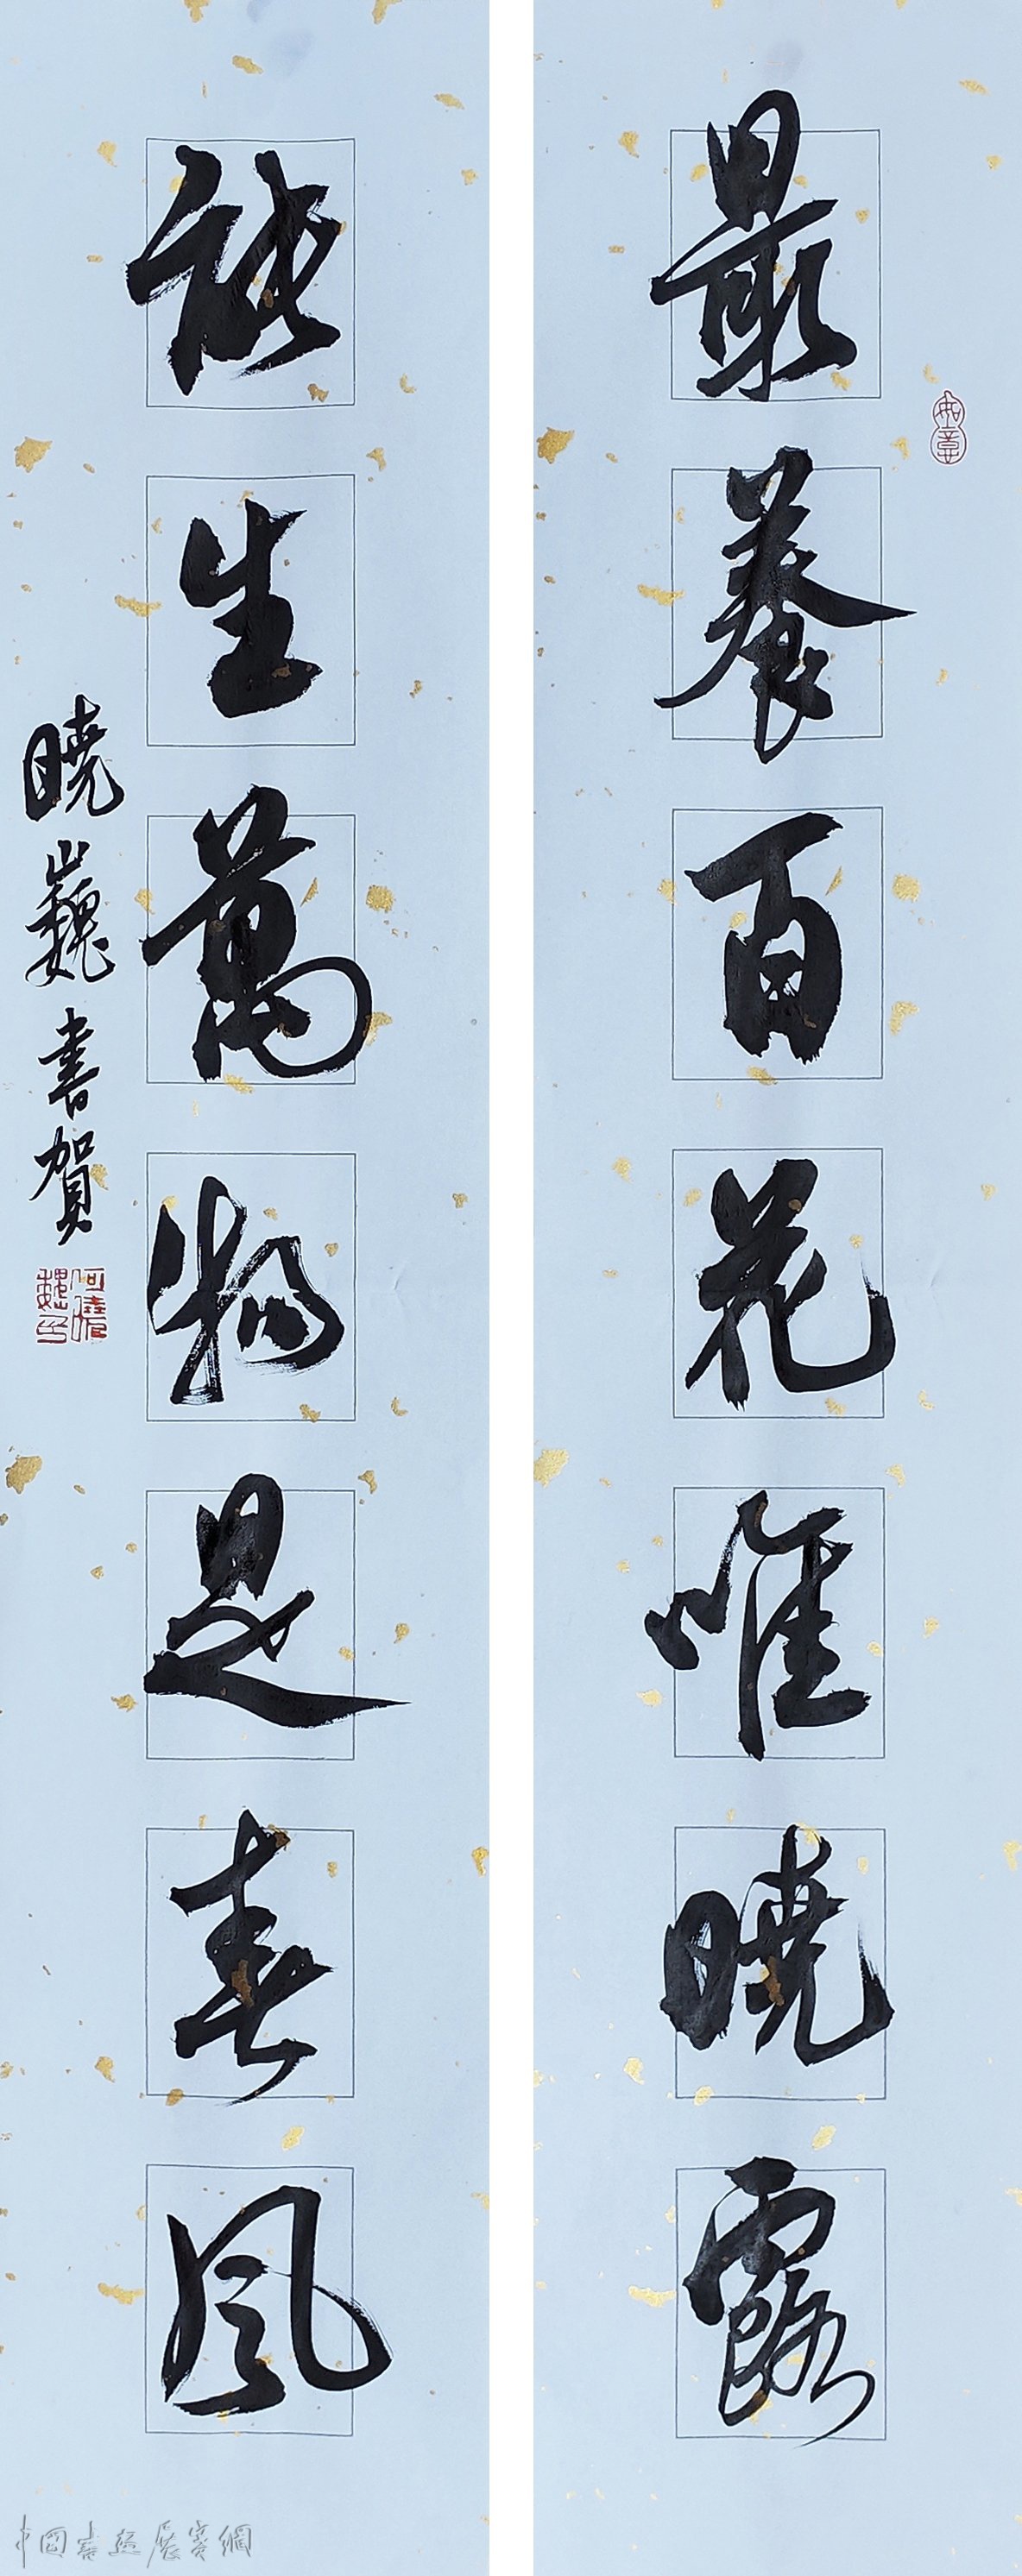 最養百花唯曉露
能生萬物是春風
曉巍書賀
中國書畫展賽網